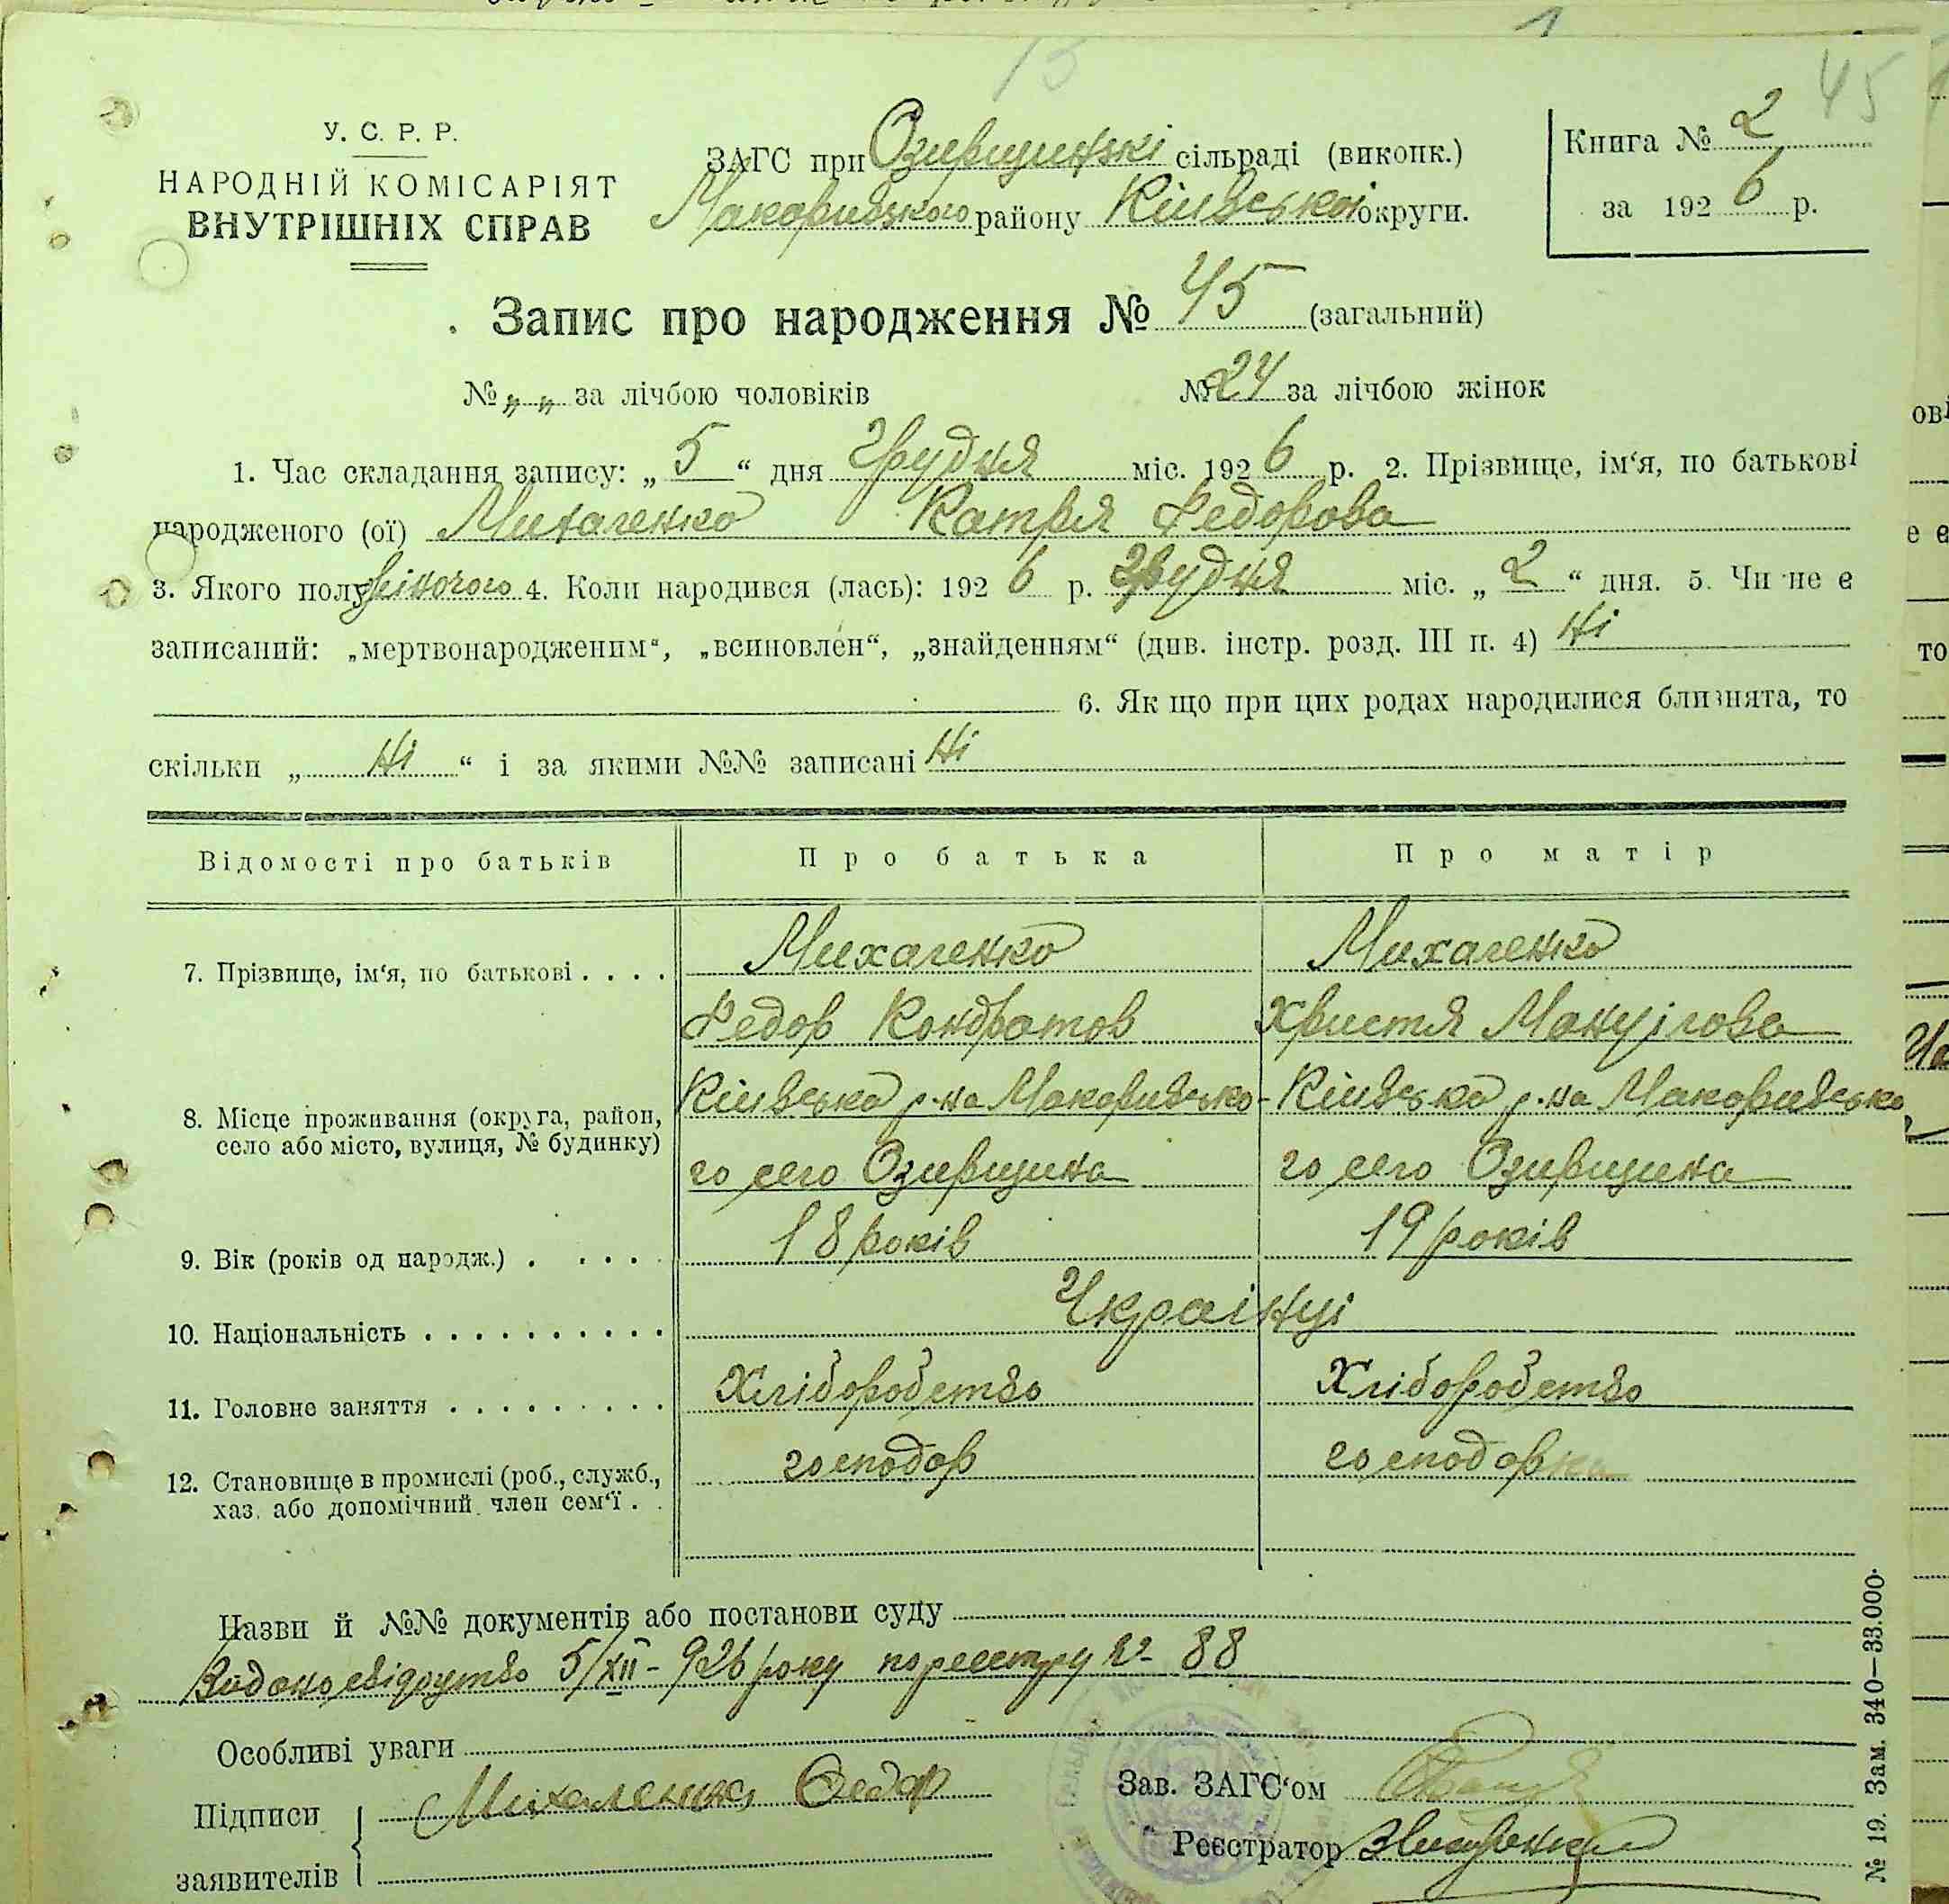 13
45
У. С. Р. Р.
НАРОДНІЙ КОМІСАРІЯТ
ВНУТРІШНІХ СПРАВ
ЗАГС при Озирщинскі сільраді (виконк.)
Макарівського району Київської округи.
Книга № 2
за 1926 р.
Запис про народження № 45 (загальний)
№ „ „ за лічбою чоловіків № 24 за лічбою жінок
1. Час складання запису: „ 5 “ дня Грудня міс. 1926 р. 2. Прізвище, ім‘я, по батькові
народженого (ої) Михаленко Катря Федорова
3. Якого полу жіночого 4. Коли народився (лась): 1926 р. Грудня міс. „ 2 “ дня. 5. Чи не є
записаний: „мертвонародженим“, „всиновлен“, „знайденням“ (див. інстр. розд. III п. 4) Ні
6. Як що при цих родах народилися близнята, то
скільки „ Ні “ і за якими №№ записані Ні
Відомості про батьків Про батька Про матір
7. Прізвище, ім‘я, по батькові . . . . Михаленко Михаленко
Федор Кондратов Христя Мануілова
8. Місце проживання (округа, район, Київська р-на Макаривсько- Київська р-на Макаривсько
село або місто, вулиця, № будинку) го село Озирщина го село Озирщина
9. Вік (років од народж.) . . . . . 18 років 19 років
10. Національність . . . . . . . . . . Українці
11. Головне заняття . . . . . . . . . Хліборобство Хліборобство
12. Становище в промислі (роб., служб., господар господарка
хаз. або допомічний член сем‘ї . .
Назви й №№ документів або постанови суду
Видано свідоцтво 5/XII - 926 року по реестру № 88
Особливі уваги
Підписи Михаленко Федор
заявителів
Зав. ЗАГС‘ом
Реєстратор
№ 19. Зам. 340—33.000.